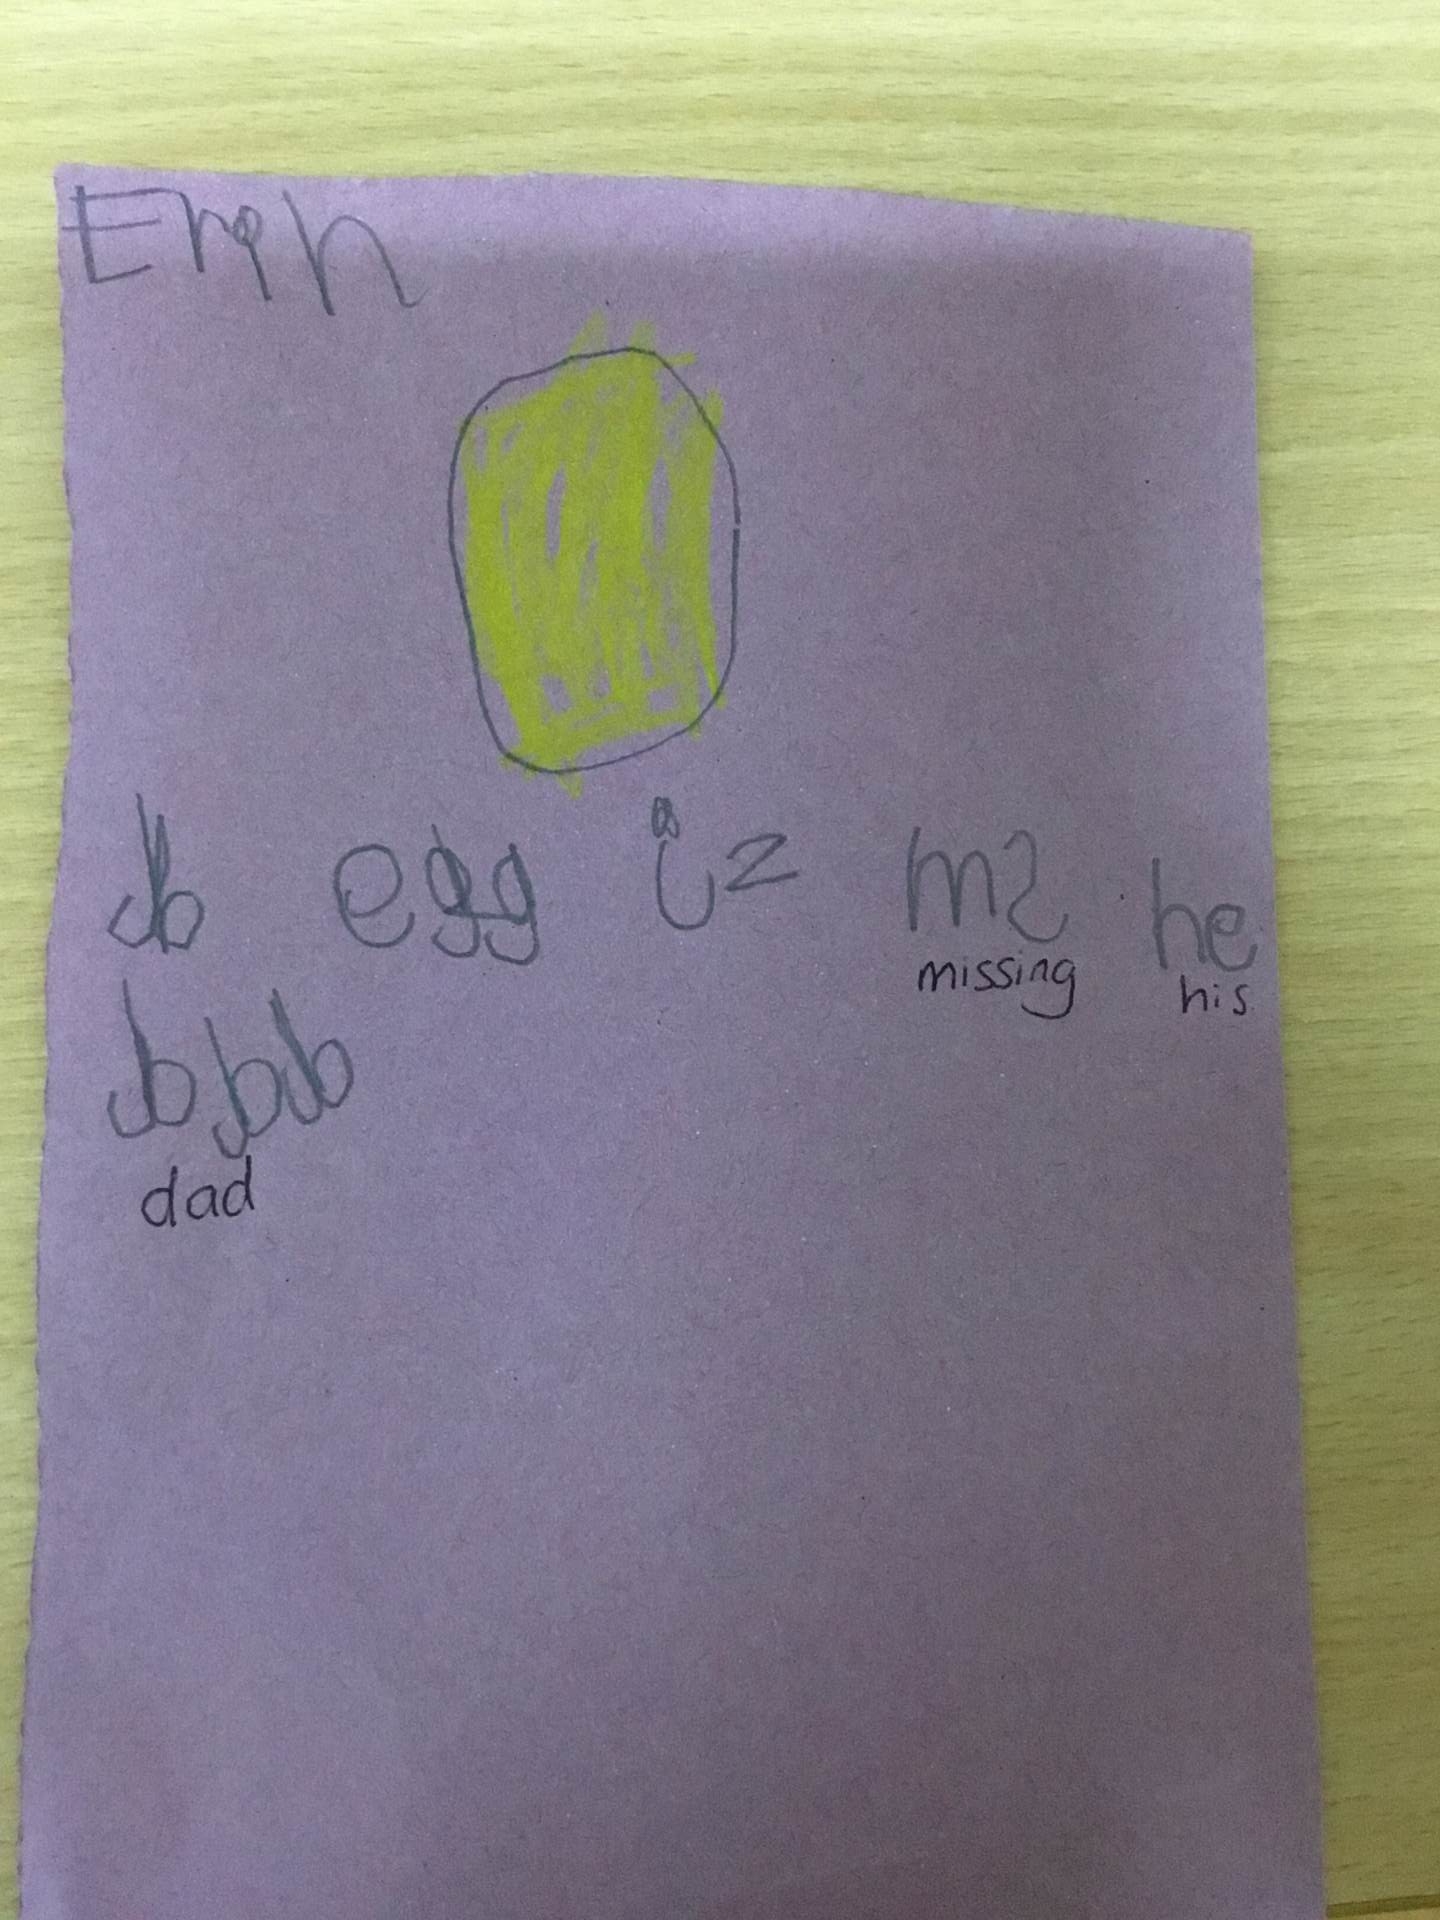 Erqh
b egg iz m2 he
missing his
bbb
dad